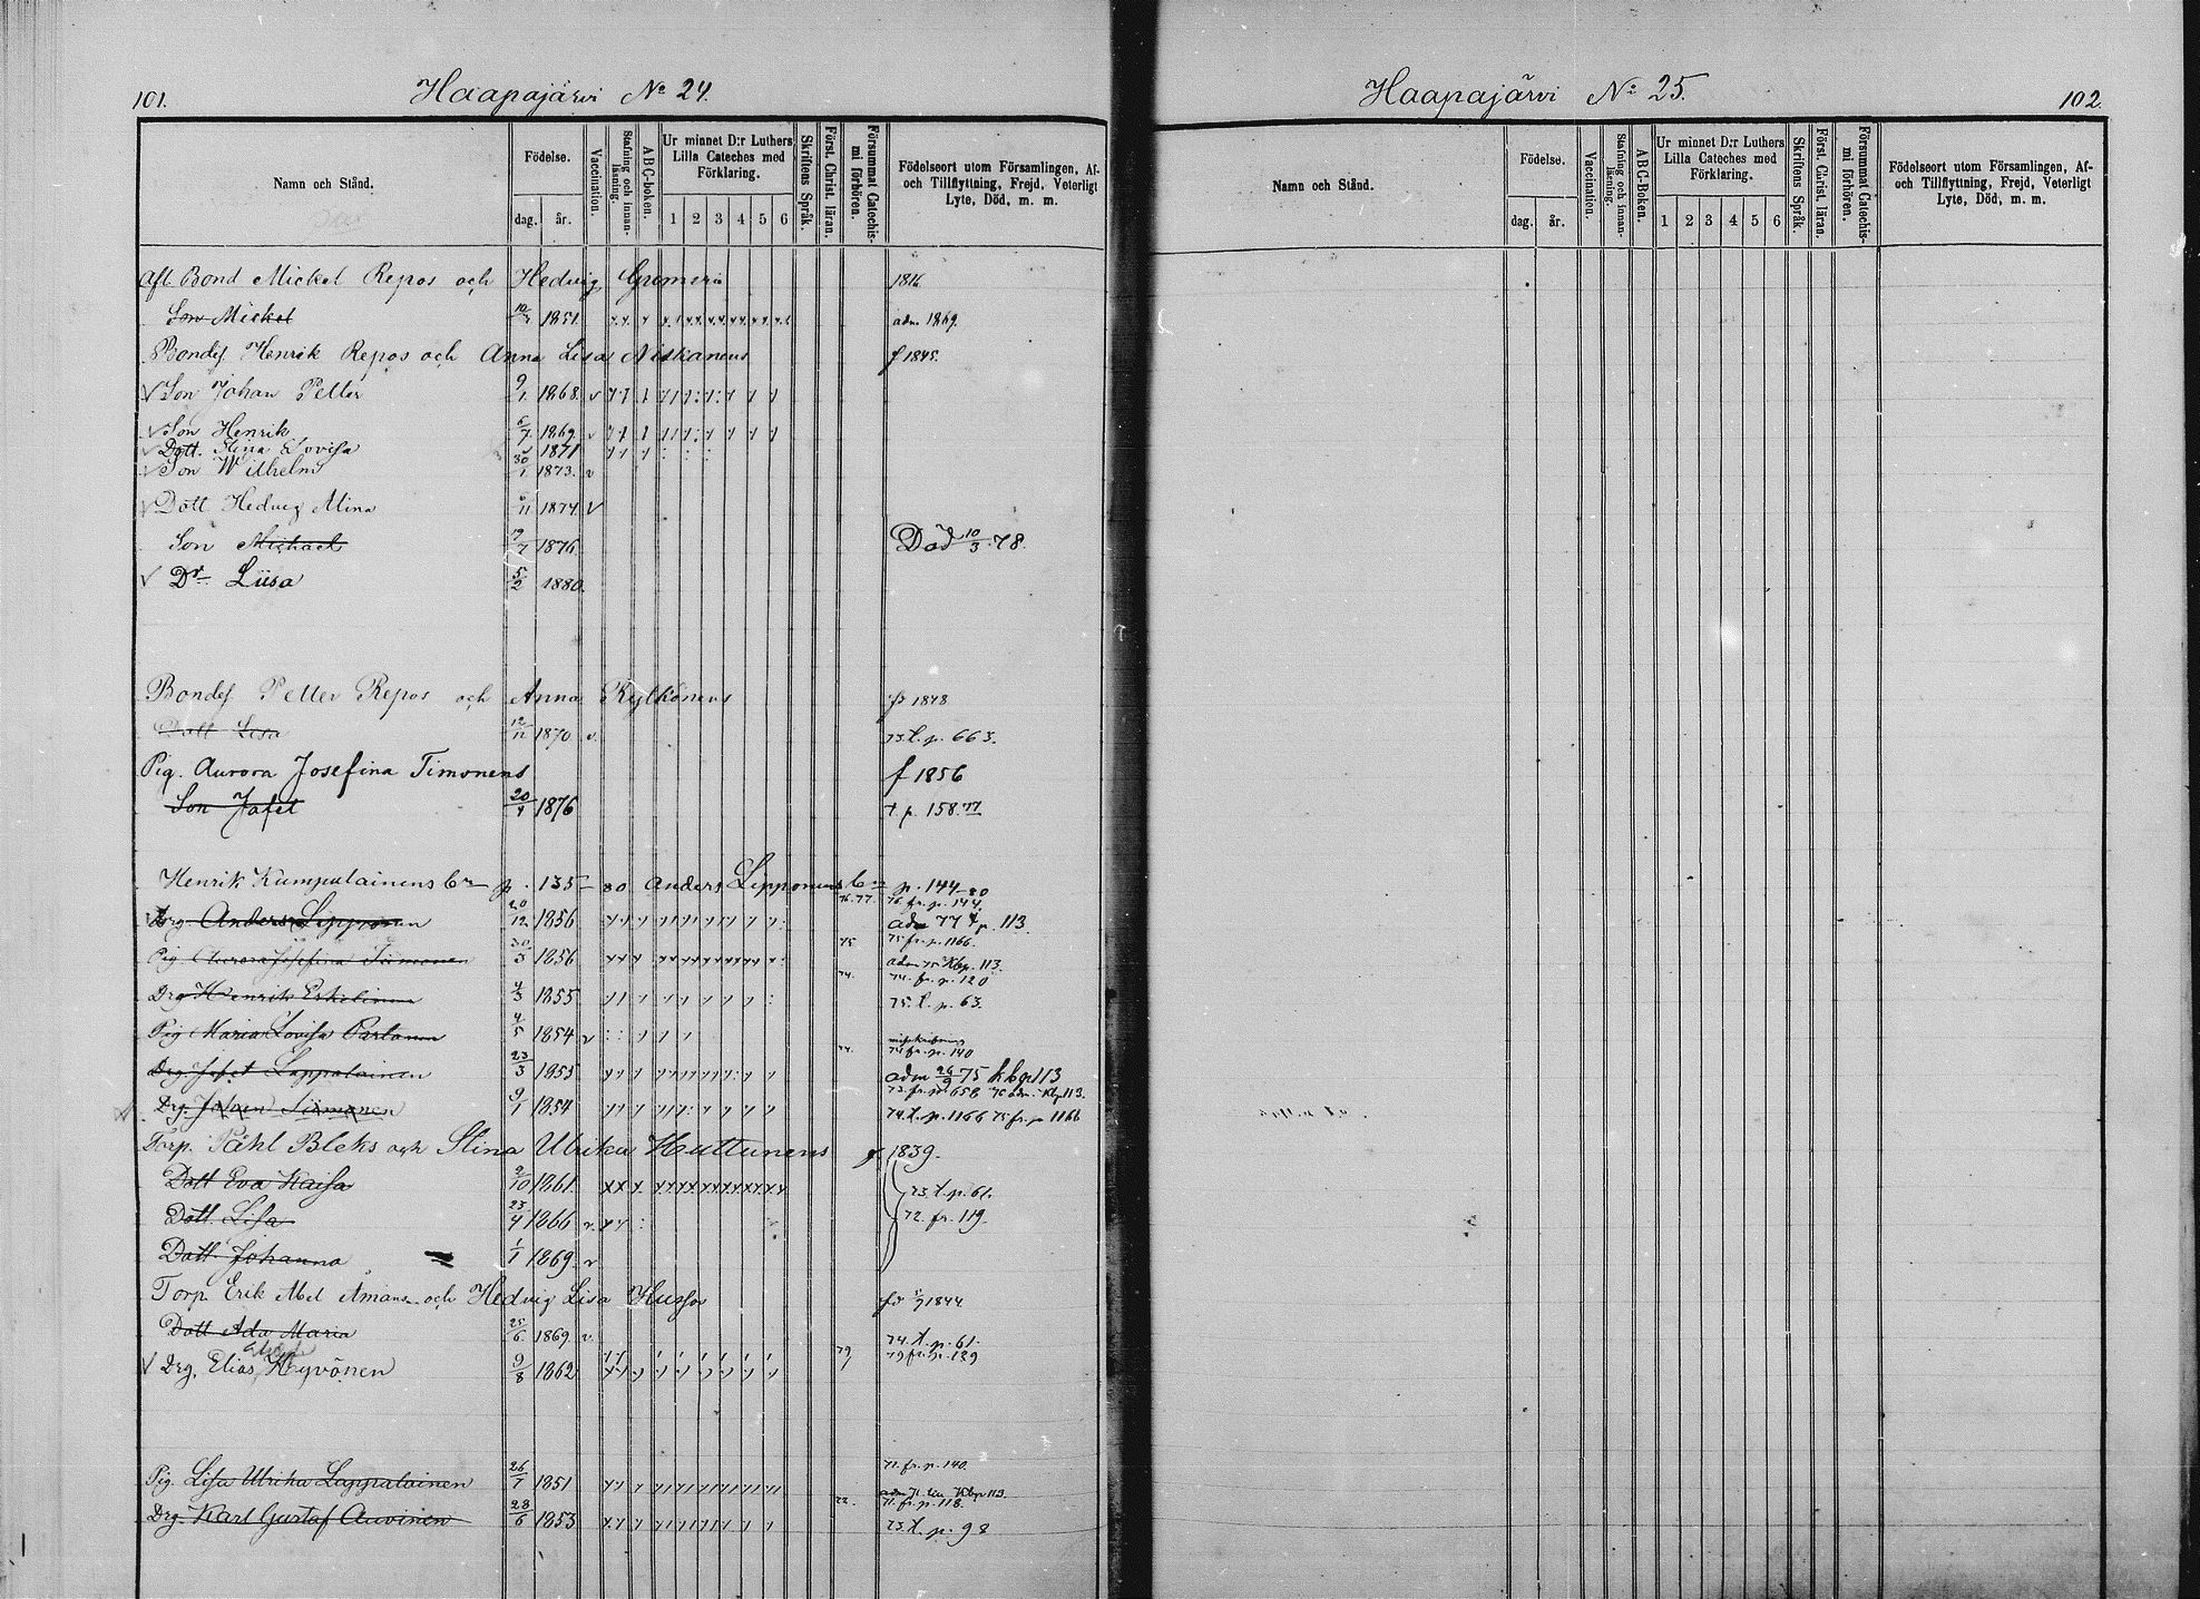 101.
Haapajärvi No 24.
Namn och Stånd.
Födelse.
dag.
år.
Vaccination.
Stafning och innanläsning.
ABC-boken.
Ur minnet D:r Luthers Lilla Cateches med Förklaring.
1 2 3 4 5 6
Skriftens Språk.
Först. Christ. läran.
Försummat Catechismi förhören.
Födelseort utom Församlingen, Af- och Tillflyttning, Frejd, Veterligt Lyte, Död, m. m.
Afl. Bond Mickel Repos och Hedvig 1816
Son Mickel 10/7 1851 adm. 1869.
Bondes. Henrik Repos och Anna Lisa Niskanens f 1845.
Son Johan Petter 9/1 1868. v
Son Henrik 6/7 1869 v
Dott. Stina Lovisa 1871
Son Wilhelm 30/1 1873. v
Dott Hedvig Mina 11 1874 v
Son Michael 7 1876 Död 10/3 78.
Dr Liisa 5/2 1880.
Bondes. Petter Repos och Anna 1848
Dott Lisa 12/11 1870 v. 73. t. p. 663.
Pig. Aurora Josefina Timonens f 1856
Son Jafet 20/4 1876 t. p. 158. 77
Henrik Kumpulainens p. 135 - 80 Anders Lipponens p. 144 - 80
76.77. 76. fr. p. 144.
Drg. Anders Lipponen 20/12 1856 adm 77 t p. 113
75 75 fr. p. 1166.
Pig. Aurora Josefina Timonen 30/3 1856 adm 75 Kbp. 113.
74. 74. fr. p. 120
Drg Henrik Eskelinen 4/3 1855 75. t. p. 63.
Pig Maria Lovisa Parlanen 4/5 1854 v
74 fr. p. 140
Drg Jafet Lappalainen 23/3 1855 adm 26/9 75 kbp 113
73. fr. p. 658 76 adm. Kbp 113.
Drg. Johan Timonen 9/1 1854 74. t. p. 1166 75 fr. p 1166
Torp. Påhl Bleks och Stina Ulrika Huttunens f 1839.
Dott Eva Kaisa 2/10 1861 73. t. p. 61.
Dott. Lisa 23/4 1866 v. 72. fr. 119.
Dott. Johanna 1/1 1869 v
Torp. Erik Abel Amans. och Hedvig Lisa Hussos 1844
Dott Ada Maria 25/6 1869. v. 74. t. p. 61.
79 79 fr. p. 129
Drg. Elias Hyvönen 9/8 1862
71. fr. p. 140
Pig. Lisa Ulrika Lappalainen 26/7 1851 adm 71 Kbp 113.
72. 71. fr. p. 118.
Drg. Karl Gustaf Auvinen 28/6 1853 73. t. p. 98
Haapajärvi No 25.
102.
Namn och Stånd.
Födelse.
dag.
år.
Vaccination.
Stafning och innanläsning.
ABC-Boken.
Ur minnet D:r Luthers Lilla Cateches med Förklaring.
1 2 3 4 5 6
Skriftens Språk.
Först. Christ. läran.
Försummat Catechismi förhören.
Födelseort utom Församlingen, Af- och Tillflyttning, Frejd, Veterligt Lyte, Död, m. m.